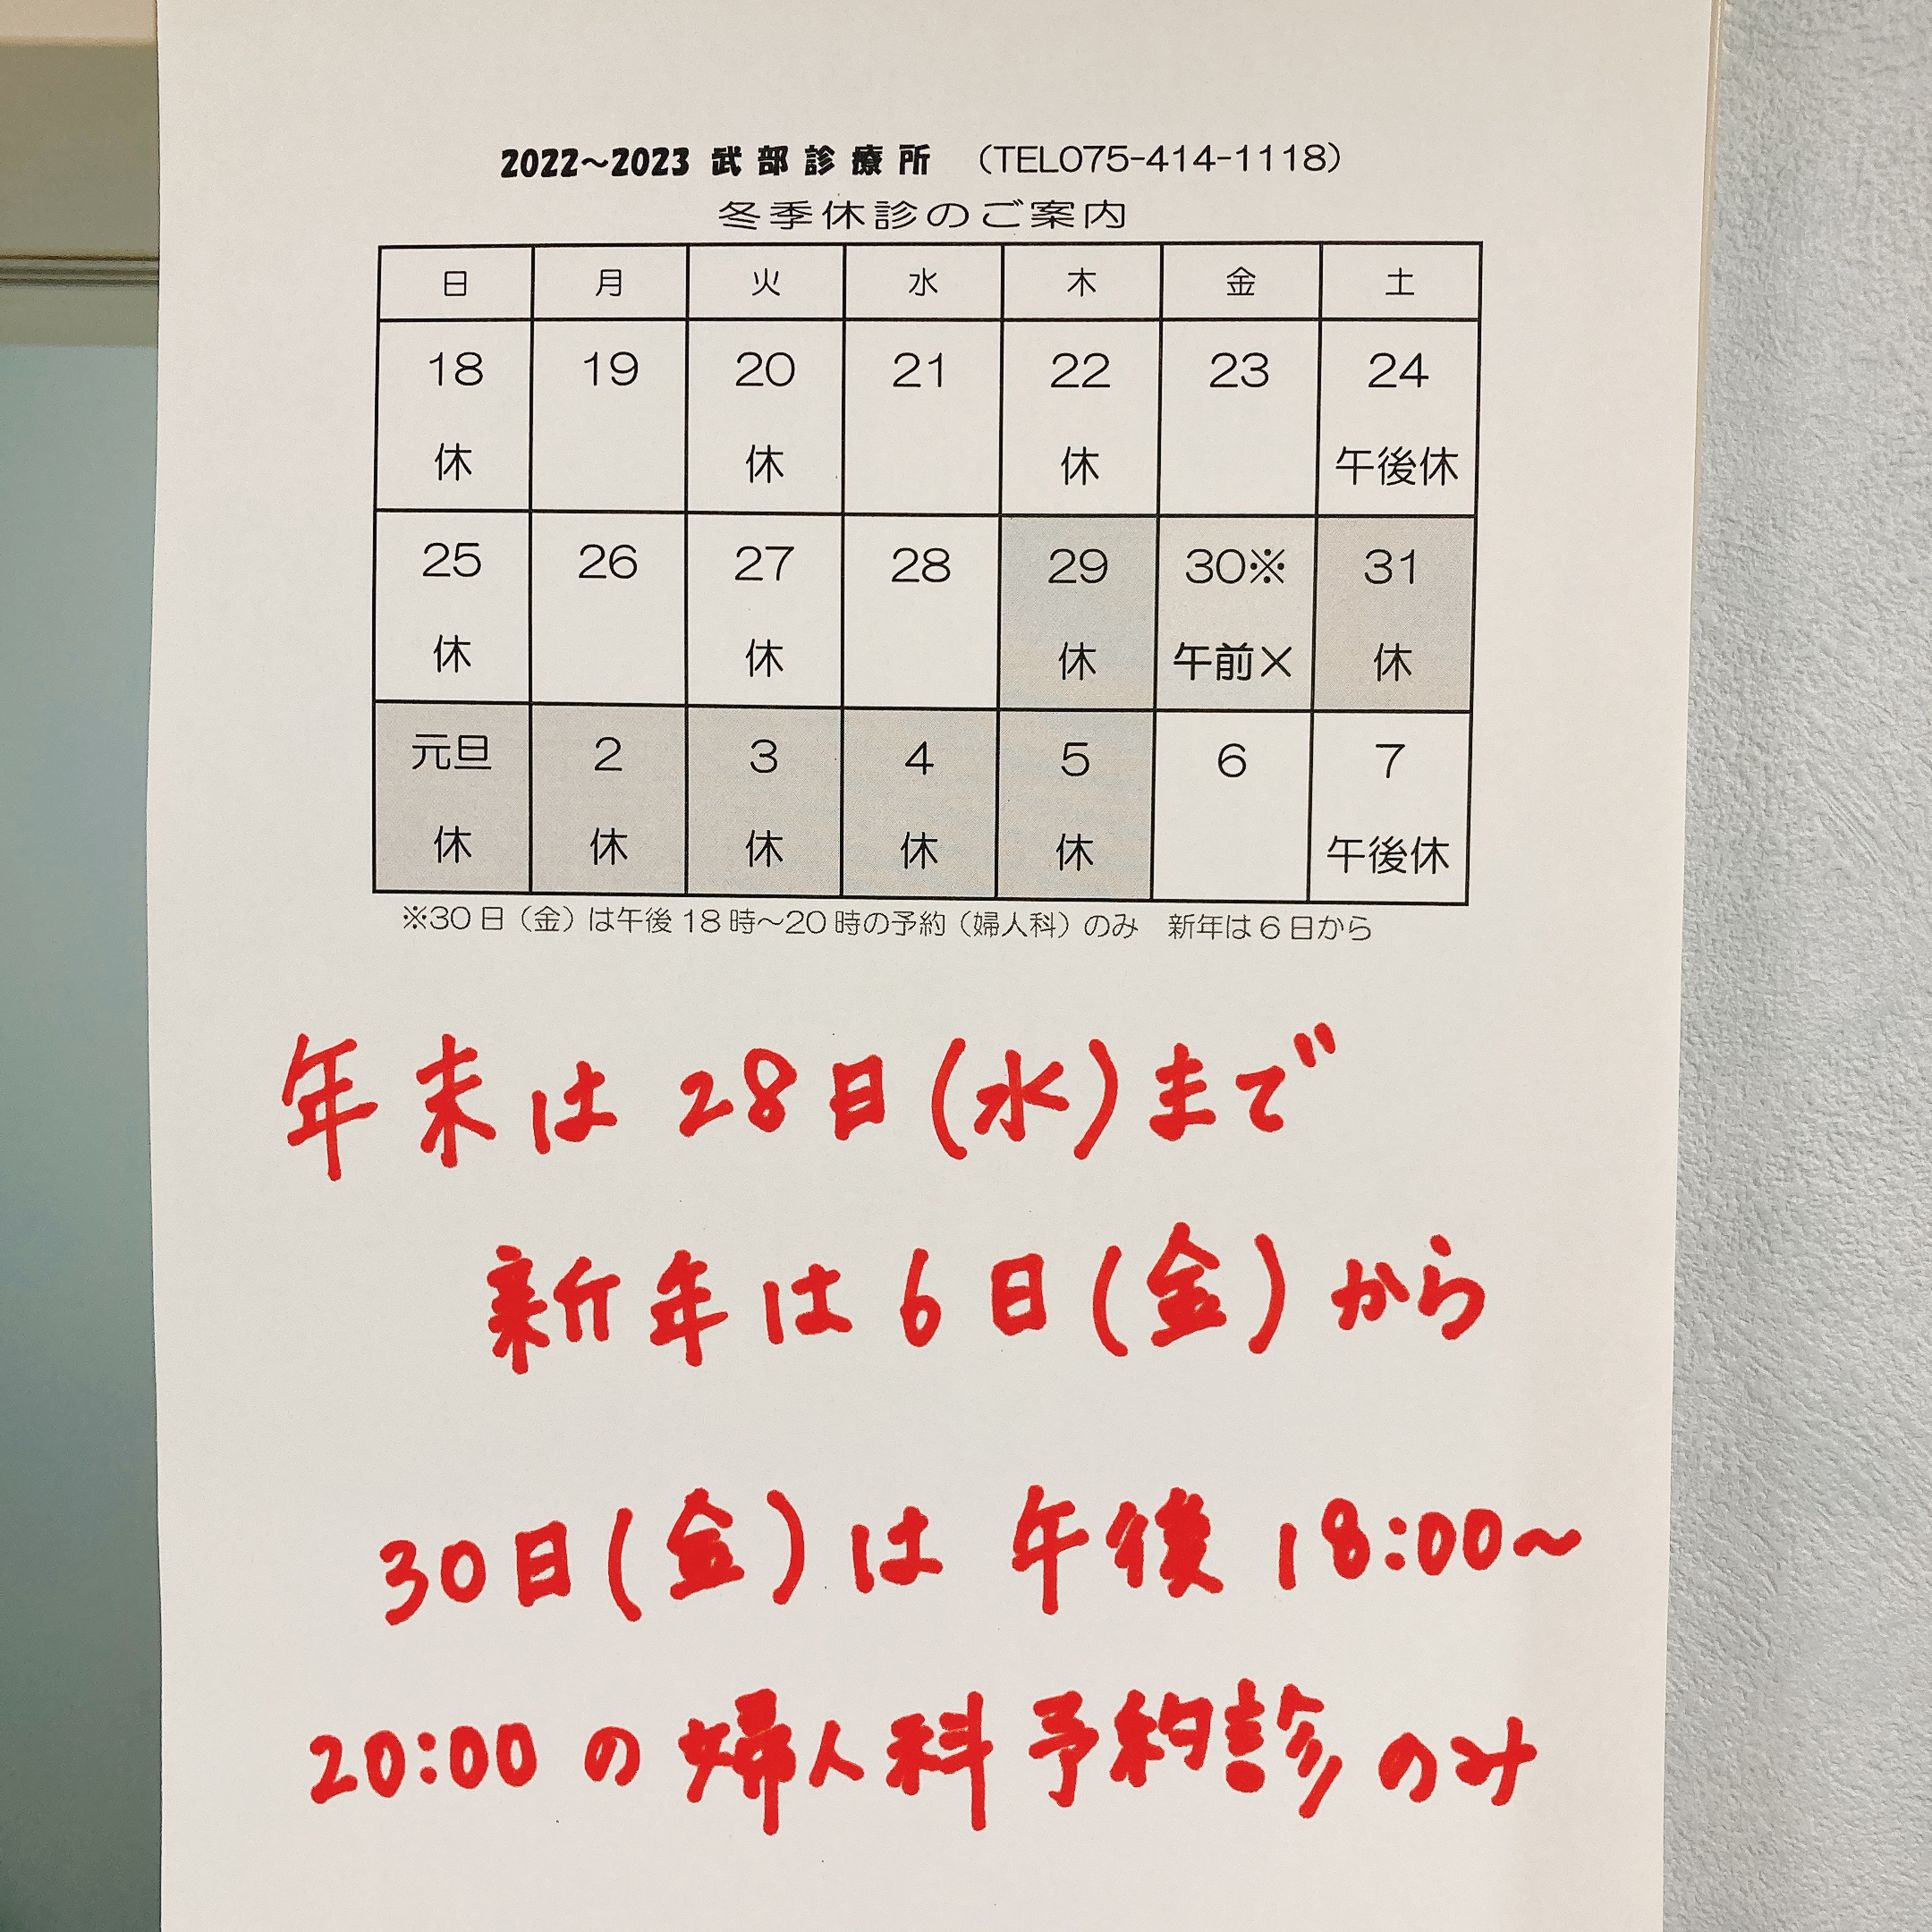 2022～2023 武部診療所 （TEL075-414-1118）
冬季休診のご案内
日 月 火 水 木 金 土
18 19 20 21 22 23 24
休 休 休 午後休
25 26 27 28 29 30※ 31
休 休 休 午前× 休
元旦 2 3 4 5 6 7
休 休 休 休 休 午後休
※30日（金）は午後18時～20時の予約（婦人科）のみ 新年は6日から
年末は28日(水)まで
新年は6日(金)から
30日(金)は 午後 18:00～
20:00の婦人科予約診のみ